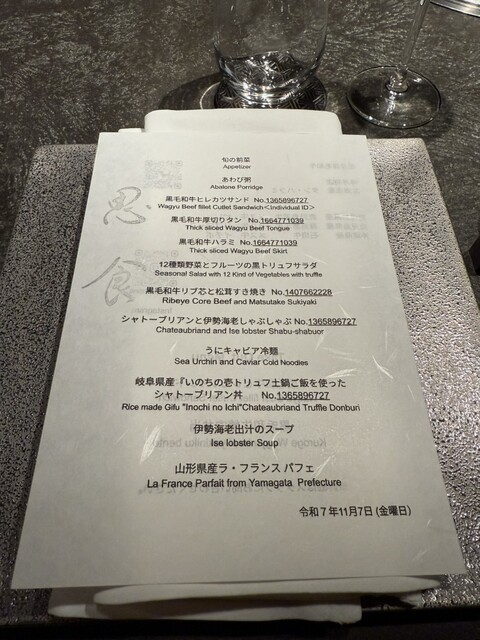 旬の前菜
Appetizer
あわび粥
Abalone Porridge
黒毛和牛ヒレカツサンド No.1365896727
Wagyu Beef fillet Cutlet Sandwich<individual ID>
黒毛和牛厚切りタン No.1664771039
Thick sliced Wagyu Beef Tongue
黒毛和牛ハラミ No.1664771039
Thick sliced Wagyu Beef Skirt
12種類野菜とフルーツの黒トリュフサラダ
Seasonal Salad with 12 Kind of Vegetables with truffle
黒毛和牛リブ芯と松茸すき焼き No.1407662228
Ribeye Core Beef and Matsutake Sukiyaki
シャトーブリアンと伊勢海老しゃぶしゃぶ No.1365896727
Chateaubriand and Ise lobster Shabu-shabuor
うにキャビア冷麺
Sea Urchin and Caviar Cold Noodles
岐阜県産『いのちの壱トリュフ土鍋ご飯を使った
シャトーブリアン丼 No.1365896727
Rice made Gifu "Inochi no Ichi"Chateaubriand Truffle Donburi
伊勢海老出汁のスープ
Ise lobster Soup
山形県産ラ・フランス パフェ
La France Parfait from Yamagata Prefecture
令和7年11月7日 (金曜日)
忍
食